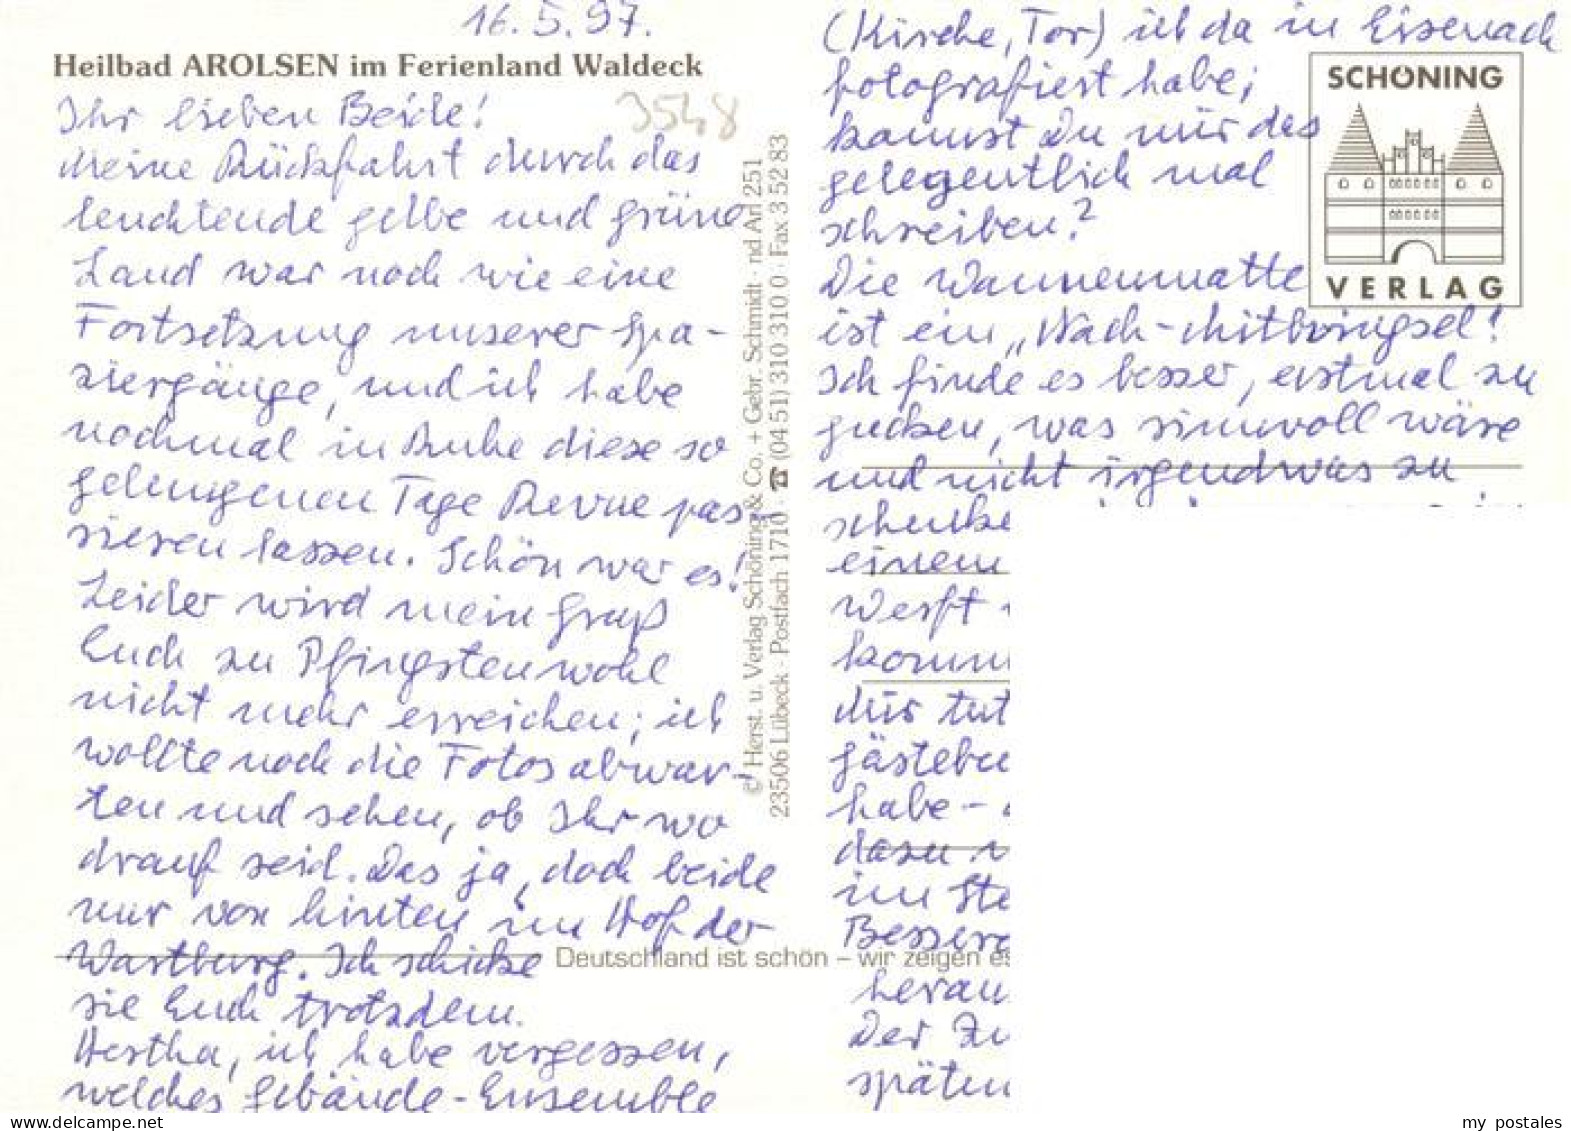 16.5.97.
Heilbad AROLSEN im Ferienland Waldeck
3548
Ihr lieben Beide!
Meine Rückfahrt durch das
leuchtende gelbe und grüne
Land war noch wie eine
Fortsetzung unserer Spa-
ziergänge, und ich habe
nochmal in Ruhe diese so
gelungenen Tage Revue pas-
sieren lassen. Schön war es!
Leider wird mein Gruß
Euch zu Pfingsten wohl
nicht mehr erreichen; ich
wollte noch die Fotos abwar-
ten und sehen, ob Ihr wo
drauf seid. Das ja, doch beide
nur von hinten im Hof der
Wartburg. Ich schicke
sie Euch trotzdem.
Hertha, ich habe vergessen,
welches Gebäude-Ensemble
© Herst. u. Verlag Schöning & Co. + Gebr. Schmidt · nd Arl 251
23506 Lübeck · Postfach 1710 ☎ (04 51) 310 310 0 · Fax 3 52 83
(Kirche, Tor) ich da in Eisenach
fotografiert habe;
kannst Du mir das
gelegentlich mal
schreiben?
Die Wannenmatte
ist ein „Nach-Mitbringsel!
Ich finde es besser, erstmal zu
gucken, was sinnvoll wäre
und nicht irgendwas zu
schenke
einem
Werft
komm
Mir tut
gästebu
habe -
dazu
im Ste
Bessere
herau
Der Zu
späten
SCHÖNING
VERLAG
Deutschland ist schön – wir zeigen es
my postales
delcampe.net